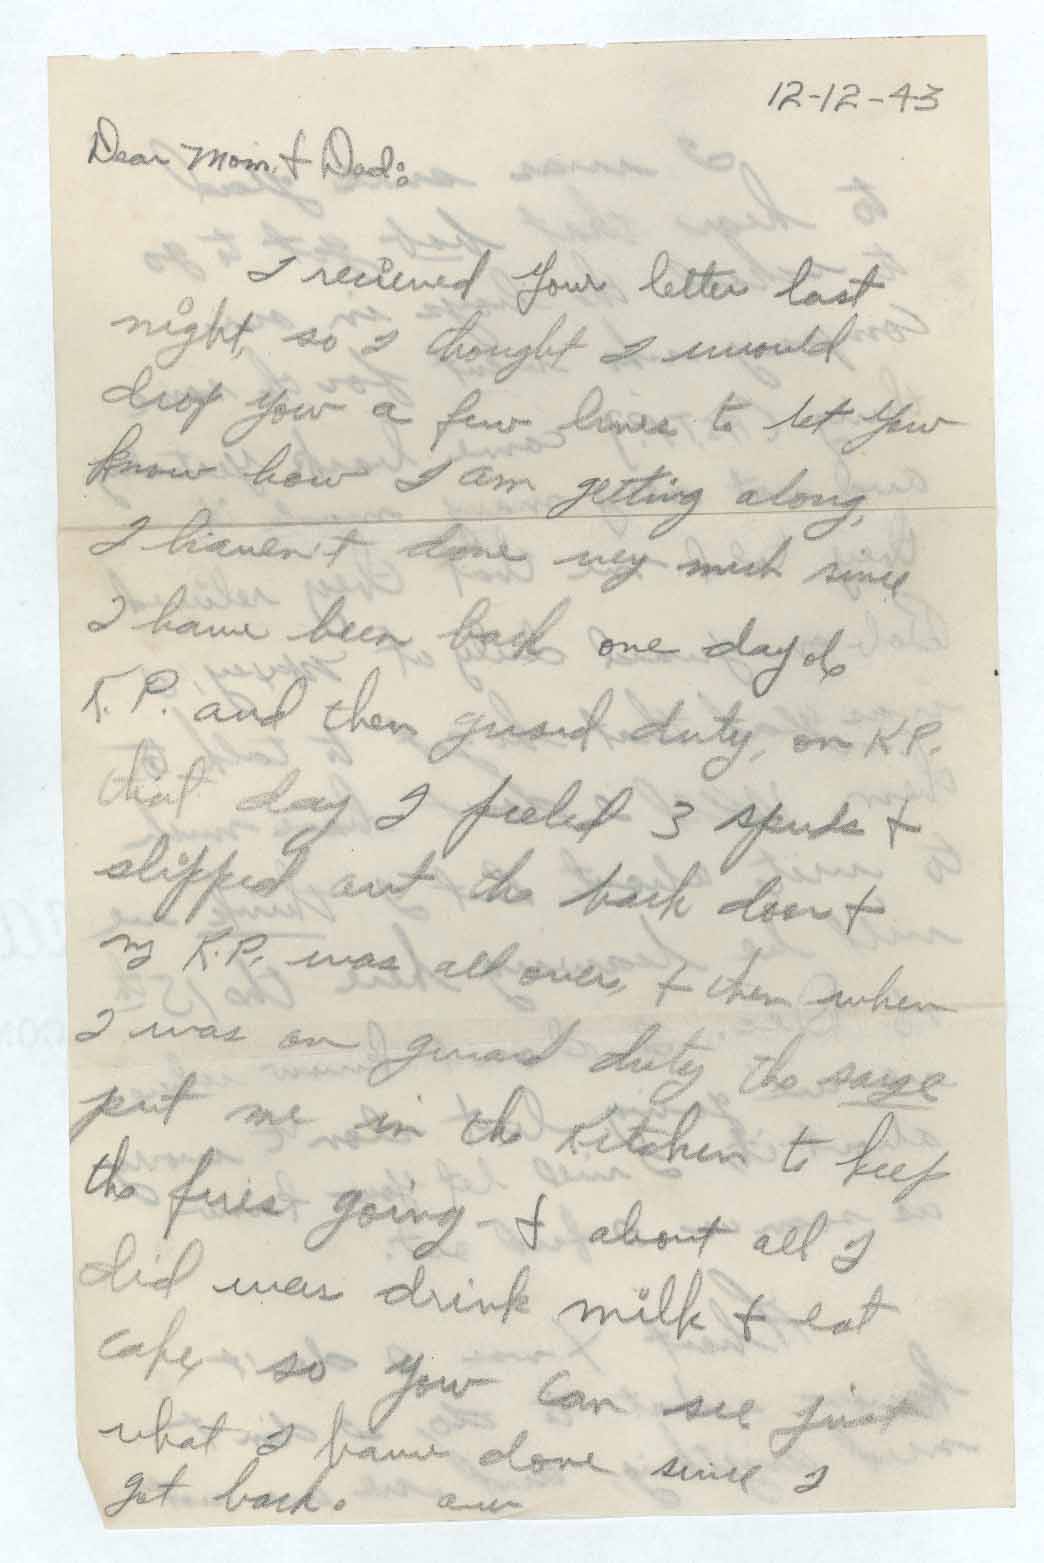 12-12-43
Dear Mom. & Dad:
I recieved your letter last
night, so I thought I would
drop you a few lines to let you
know how I am getting along,
I haven't done very much since
I have been back one day of
K.P. and then guard duty, on K.P.
that day I peeled 3 spuds &
slipped out the back door &
my K.P. was all over, & then when
I was on guard duty the sarge
put me in the Kitchen to keep
the fires going & about all I
did was drink milk & eat
cake, so you can see just
what I have done since I
got back.